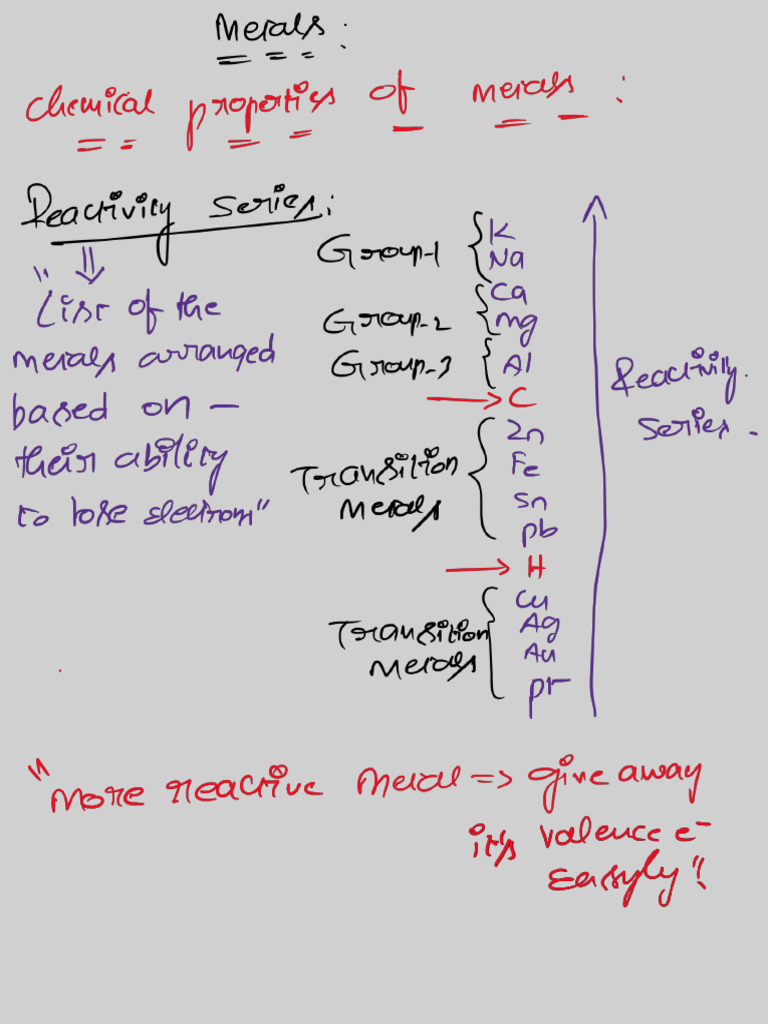 Metals:
Chemical properties of metals:
Reactivity series:
"List of the
metals arranged
based on -
their ability
to lose electrons"
Group-1
K
Na
Group-2
Ca
Mg
Group-3
Al
→ C
Transition
Metals
Zn
Fe
Sn
Pb
→ H
Transition
Metals
Cu
Ag
Au
Pt
Reactivity
series.
"More reactive metal => give away
it's valence e-
Easyly"!